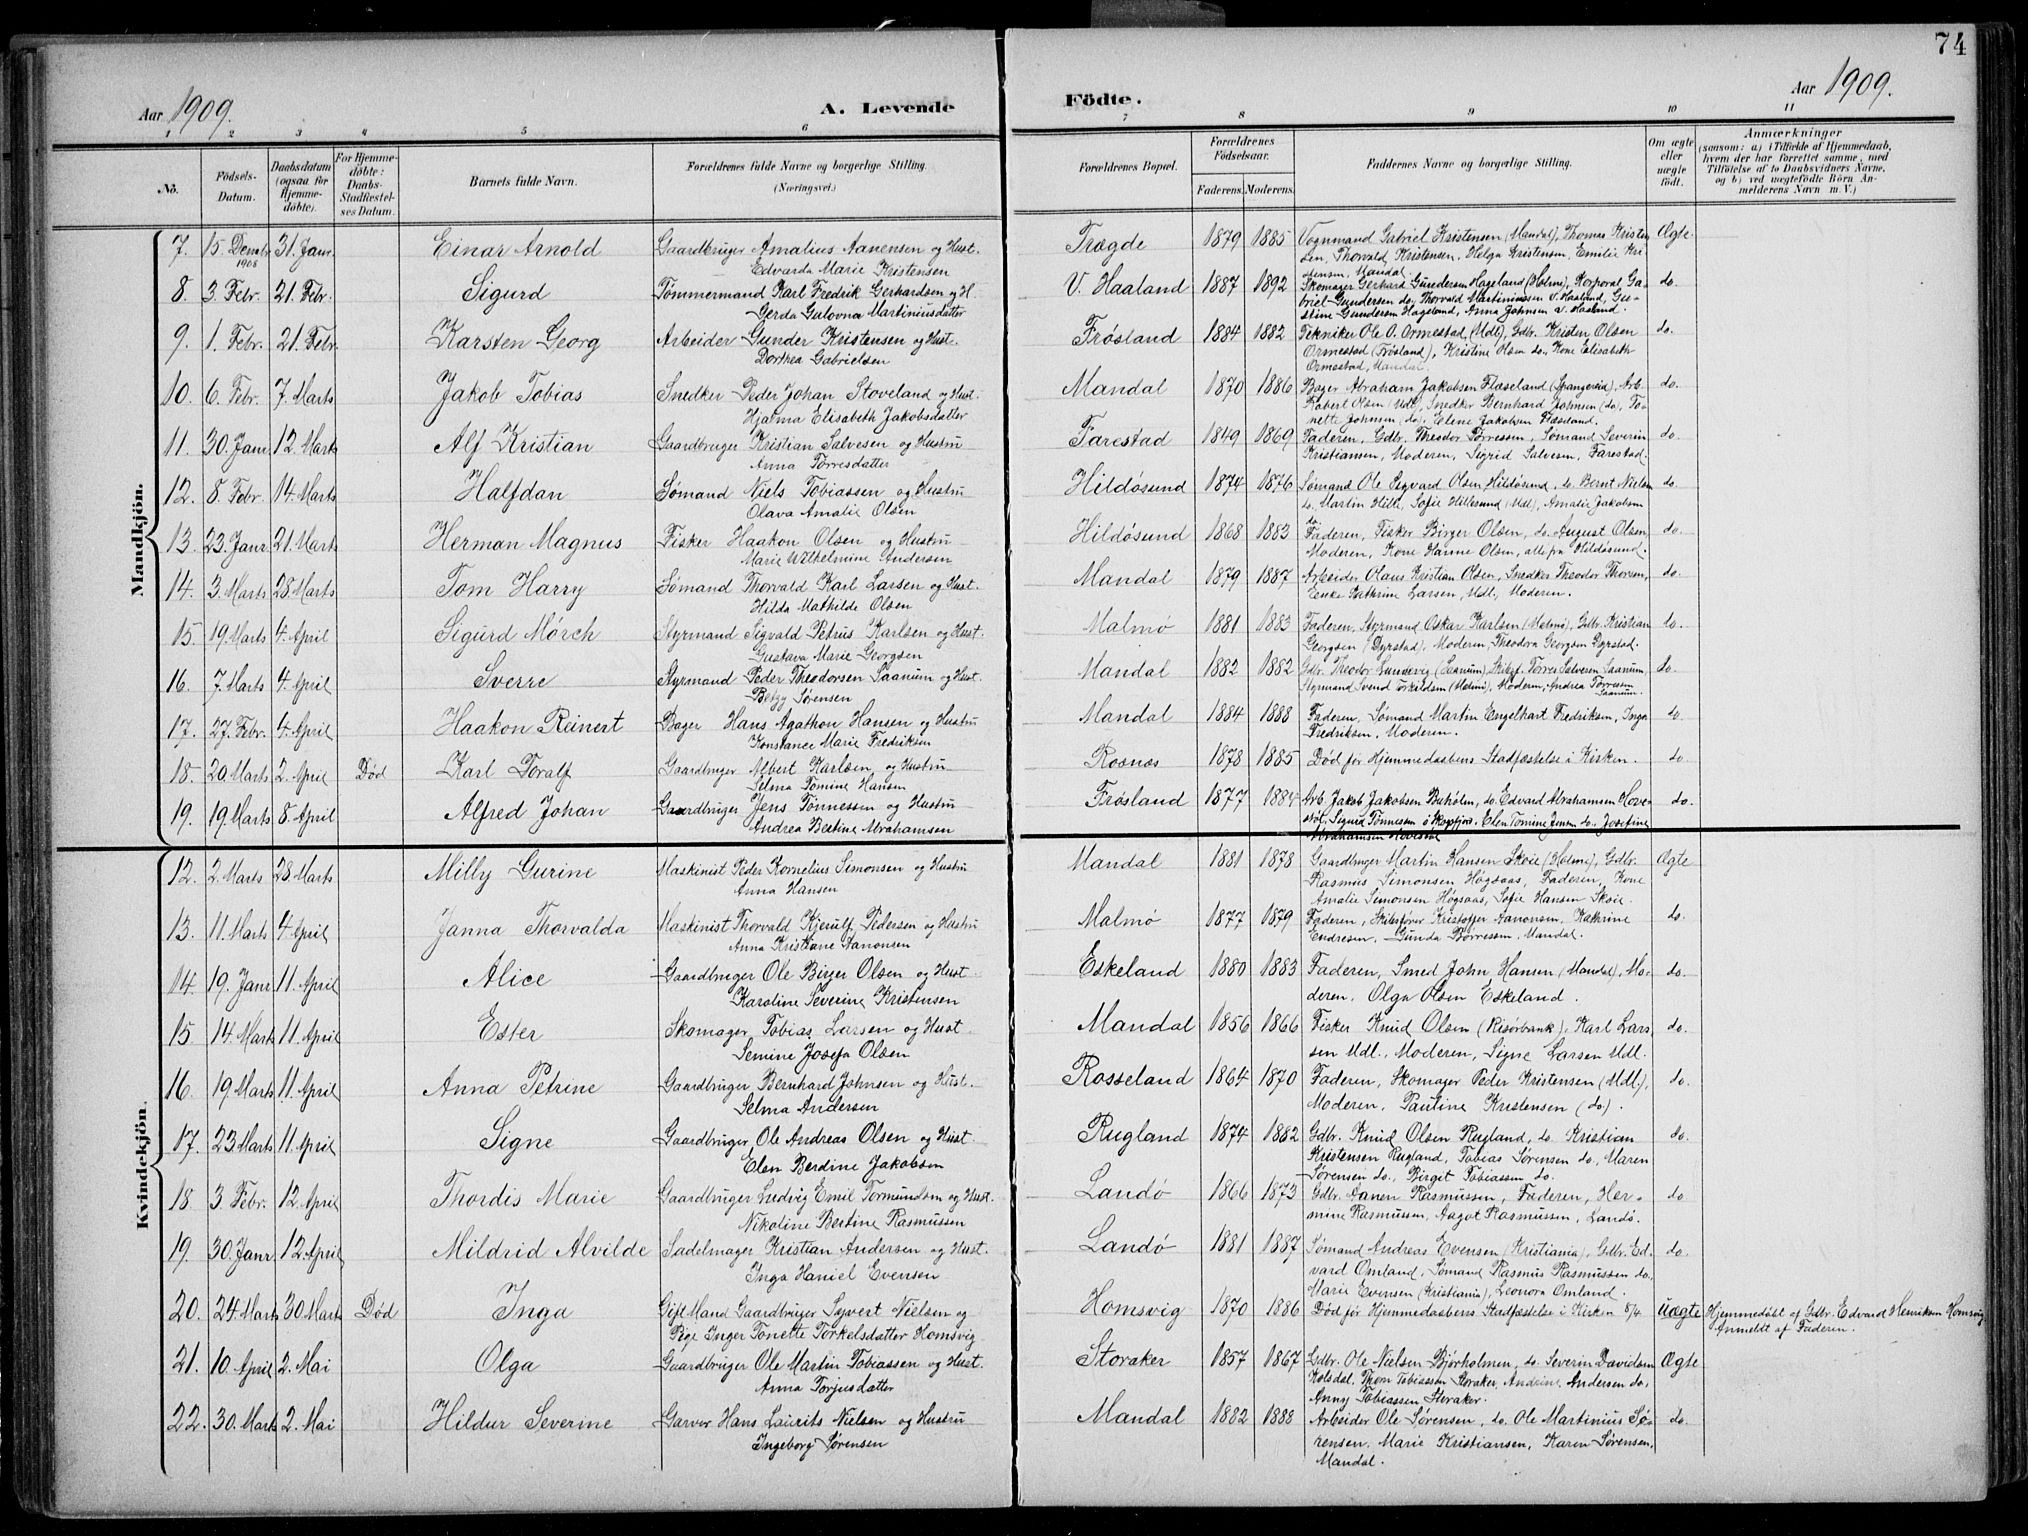 74
Aar 1909.
A. Levende
Födte.
Aar 1909.
1 2 3 4 5 6 7 8 9 10 11
No.
Födsels-Datum.
Daabsdatum (ogsaa for Hjemmedöbte).
For Hjemmedöbte: Daabs-Stadfestelses Datum.
Barnets fulde Navn.
Forældrenes fulde Navne og borgerlige Stilling. (Næringsvei.)
Forældrenes Bopæl.
Forældrenes Födselsaar.
Faderens. Moderens.
Faddernes Navne og borgerlige Stilling.
Om ægte eller uægte födt.
Anmærkninger
(saasom: a) i Tilfælde af Hjemmedaab,
hvem der har forrettet samme, med
Tilföielse af to Daabsvidners Navne,
og b) ved uægtefödte Börn An-
melderens Navn m. V.)
Mandkjön.
7. 15. Decmbr 1908 31. Janr. Einar Arnold Gaardbruger Amalius Aanensen og Hust. Trægde 1879 1885 Vognmand Gabriel Kristensen (Mandal), Thomas Kristen Ægte.
Edvarda Marie Kristensen sen, Thorvald Kristensen, Helga Kristensen, Emilie Kri
stensen, Mandal.
8. 3. Febr. 21. Febr. Sigurd Tømmermand Karl Fredrik Gerhardsen og H. V. Haaland 1887 1892 Skomager Gerhard Gundersen Hageland (Holme), Korporal Ga- do.
Gerda Gulovna Martiniusdatter briel Gundersen do, Thorvald Martiniussen V. Haaland, Gu-
stine Gundersen Hageland, Anna Johnsen V. Haaland.
9. 1. Febr. 21. Febr. Karsten Georg Arbeider Gunder Kristensen og Hust. Frøsland 1884 1882 Tekniker Ole O. Ormestad (Mdl), Gdbr. Kristen Olsen do.
Dorthea Gabrielsen Ormestad (Frøsland), Kristine Olsen do., Kone Elisabeth
Ormestad, Mandal.
10. 6. Febr. 7. Marts Jakob Tobias Snedker Peder Johan Stoveland og Hust. Mandal 1870 1886 Bager Abraham Jakobsen Flæseland (Spangereid), Arb. do.
Hjalma Elisabeth Jakobsdatter Robert Olsen (Mdl), Snedker Bernhard Johnsen (do), To-
nette Johnsen (do), Elene Jakobsen Flæseland.
11. 30. Janr. 12. Marts Alf Kristian Gaardbruger Kristian Salvesen og Hustru Farestad 1849 1869 Faderen, Gdbr. Theodor Tørressen, Sømand Severin do.
Anna Tørresdatter Kristiansen, Moderen, Sigrid Salvesen, Farestad.
12. 8. Febr. 14. Marts Halfdan Sømand Niels Tobiassen og Hustru Hildøsund 1874 1876 Sømand Ole Sigvard Olsen Hildøsund, do. Bernt Nielsen do.
Olava Amalie Olsen do, Martin Hille, Sofie Hillesund (Mdl), Amalie Jakobsen
do
13. 23. Janr. 21. Marts Herman Magnus Fisker Haakon Olsen og Hustru Hildøsund 1868 1883 Faderen, Fisker Birger Olsen, do. August Olsen, do.
Marie Wilhelmine Andersen Moderen, Kone Hanne Olsen, alle fra Hildøsund.
14. 3. Marts 28. Marts Tom Harry Sømand Thorvald Karl Larsen og Hust. Mandal 1879 1887 Arbeider Olaus Kristian Olsen, Snedker Theodor Thorsen, do.
Hilda Mathilde Olsen Enke Kathrine Larsen, Mdl, Moderen.
15. 19. Marts 4. April Sigurd Mørch Styrmand Sigvald Petrus Karlsen og Hust. Malmø 1881 1883 Faderen, Styrmand Oskar Karlsen (Malmø), Gdbr. Kristian do.
Gustava Marie Georgsen Georgsen (Dyrstad), Moderen, Theodora Georgsen Dyrstad.
16. 7. Marts 4. April Sverre Styrmand Peder Theodorsen Saanum og Hust. Mandal 1882 1882 Gdbr. Theodor Lundevig (Saanum), Skibsf. Tørres Salvesen Saanum, do.
Betzy Sørensen Styrmand Svend Torkildsen (Malmø), Moderen, Andrea Tørressen
Saanum.
17. 27. Febr. 4. April Haakon Reinert Bager Hans Agathon Hansen og Hustru Mandal 1884 1888 Faderen, Sømand Martin Engelhart Fredriksen, Inga do.
Konstance Marie Fredriksen Fredriksen, Moderen.
18. 20. Marts 2. April Død Karl Toralf Gaardbruger Albert Karlsen og Hustru Rosnæs 1878 1885 Død før Hjemmedaabens Stadfæstelse i Kirken. do
Selma Tomine Hansen
19. 19. Marts 8. April Alfred Johan Gaardbruger Jens Tønnessen og Hustru Frøsland 1877 1884 Arb. Jakob Jakobsen Buhølen, do. Edvard Abrahamsen Hove- do.
Andrea Bertine Abrahamsen støl, Sigurd Tønnessen Skogsfjor, Elen Tomine Jensen do. Josefine
Abrahamsen Hovestøl
Kvindekjön.
12. 2. Marts 28. Marts Milly Gurine Maskinist Peder Kornelius Simonsen og Hustru Mandal 1881 1878 Gaardbruger Martin Hansen Skoie (Holme), Gdbr. Ægte
Anna Hansen Rasmus Simonsen Høgsaas, Faderen, Kone
Amalie Simonsen Høgsaas, Sofie Hansen Skoie.
13. 11. Marts 4. April Janna Thorvalda Maskinist Thorvald Kjerulf Pedersen og Hustru Malmø 1877 1879 Faderen, Skibsfører Kristoffer Aanonsen, Kathrine do.
Anna Kristiane Aanonsen Endresen, Gunda Børresen, Mandal.
14. 19. Janr. 11. April Alice Gaardbruger Ole Birger Olsen og Hust. Eskeland 1880 1883 Faderen, Smed John Hansen (Mandal), Mo- do.
Karoline Severine Kristensen deren, Olga Olsen Eskeland.
15 14. Marts 11. April Ester Skomager Tobias Larsen og Hust. Mandal 1856 1866 Fisker Knud Olsen (Risørbank), Karl Lars, do.
Semine Josefa Olsen sen Mdl., Moderen, Signe Larsen Mdl.
16. 19. Marts 11. April Anna Petrine Gaardbruger Bernhard Johnsen og Hust. Rosseland 1864 1870 Faderen, Skomager Peder Kristensen (Mdl), do.
Selma Andersen Moderen, Pauline Kristensen (do).
17. 23. Marts 11. April Signe Gaardbruger Ole Andreas Olsen og Hust. Rugland 1874 1882 Gdbr. Knud Olsen Rugland, do. Kristian do.
Elen Berdine Jakobsen Kristensen Rugland, Tobias Sørensen do, Maren
Sørensen do, Birgit Tobiassen do.
18. 3. Febr. 12. April Thordis Marie Gaardbruger Ludvig Emil Tormundsen og Hust. Landø 1866 1873 Gdbr. Aanen Rasmussen, Faderen, Her- do
Nikoline Bertine Rasmussen mine Rasmussen, Aagot Rasmussen, Landø.
19. 30. Janr. 12. April Mildrid Alvilde Sadelmager Kristian Andersen og Hust. Landø 1881 1887 Sømand Andreas Evensen (Kristiania), Gdbr. Ed. do.
Inga Haniel Evensen vard Omland, Sømand Rasmus Rasmussen do,
Marie Evensen (Kristiania), Leonora Omland.
20. 24. Marts 30. Marts Død Inga Gift Mand Gaardbruger Syvert Nielsen og Homsvig 1870 1886 Død før Hjemmedaabens Stadfæstelse i Kirken 8/4. Uægte Hjemmedøbt af Gdbr. Edvard Henriksen Homsvig
Pige Inger Tonette Torkelsdatter Homsvig Anmeldt af Faderen.
21. 10. April 2. Mai Olga Gaardbruger Ole Martin Tobiassen og Hust. Storaker 1857 1867 Gdbr. Ole Nielsen Bjørholmen, do. Severin Davidsen Ægte
Anna Torjusdatter Kolsdal, Thom Tobiassen Storaker, Andrine Andersen do,
Anny Tobiassen Storaker.
22. 30. Marts 2. Mai Hildur Severine Garver Hans Laurits Nielsen og Hustru Mandal 1882 1888 Arbeider Ole Sørensen, do. Ole Martinius Sø- do.
Ingeborg Sørensen rensen, Marie Kristiansen, Karen Sørensen,
Mandal.